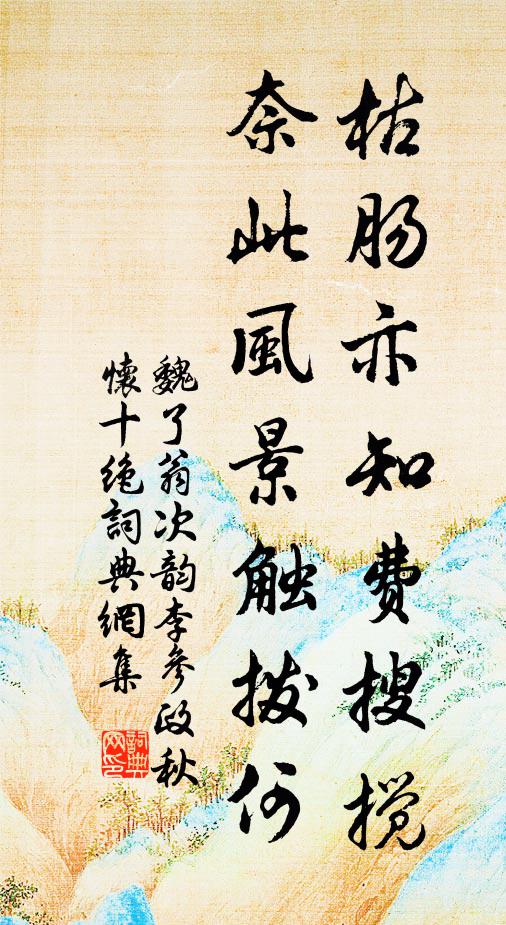 枯肠亦知费搜搅
奈此風景触拨何
魏了翁次韵李参政秋
懷十绝詞典網集
詞典网印